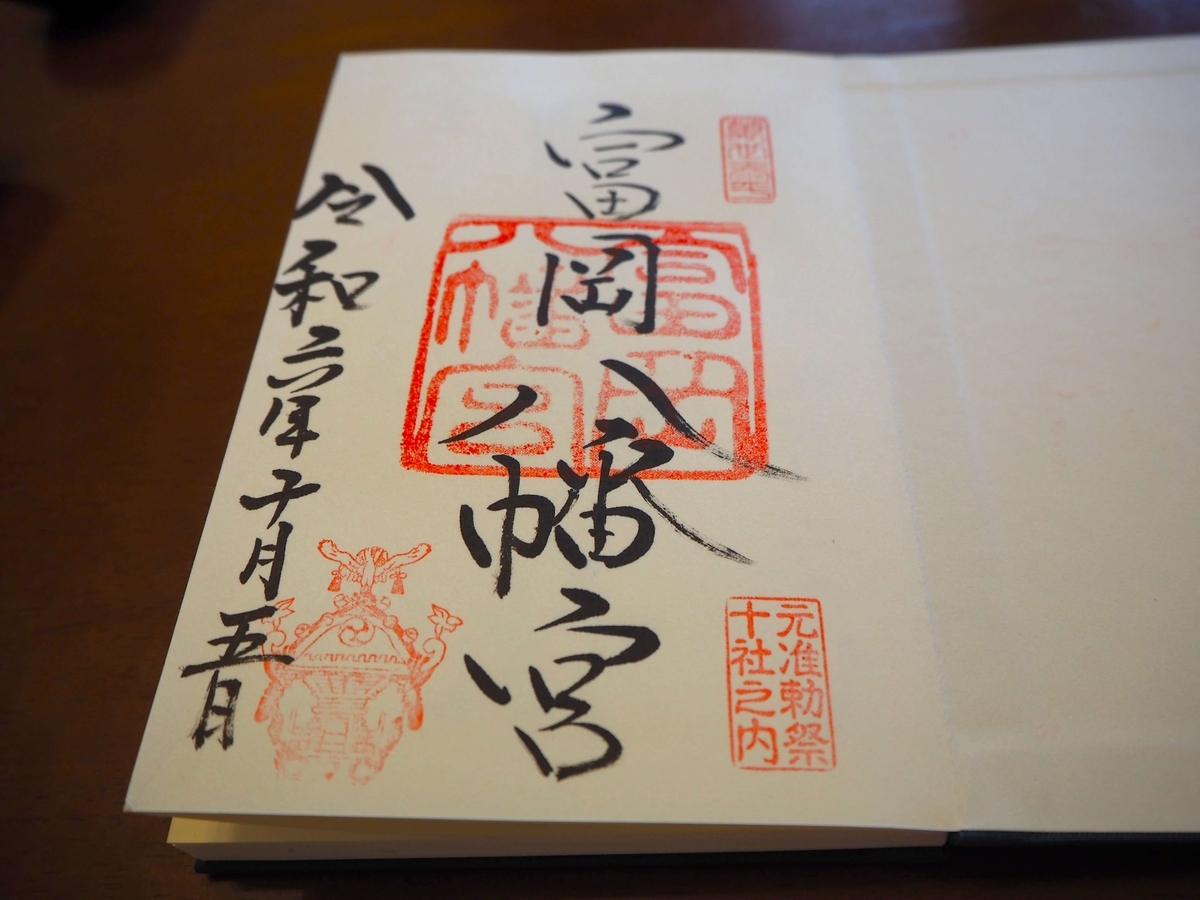 元准勅祭
十社之内
富岡八幡宮
富岡
八幡宮
令和六年十月五日